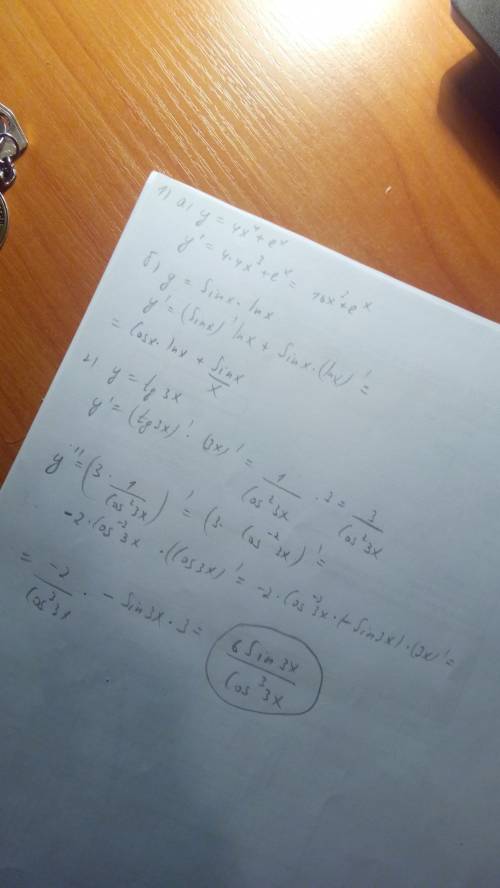 1) а) y = 4x⁴ + eˣ
y' = 4·4x³ + eˣ = 16x³ + eˣ
б) y = sinx · lnx
y' = (sinx)' lnx + sinx · (lnx)' =
= cosx · lnx + sinx/x
2) y = tg 3x
y' = (tg3x)' · (3x)' = 1/cos²3x · 3 = 3/cos²3x
y'' = (3 · 1/cos²3x)' = (3 · cos⁻²3x)' =
-2 · cos⁻³3x · (cos3x)' = -2 · cos⁻³3x · (-sin3x) · (3x)' =
= -2/cos³3x · - sin3x · 3 = 6sin3x/cos³3x